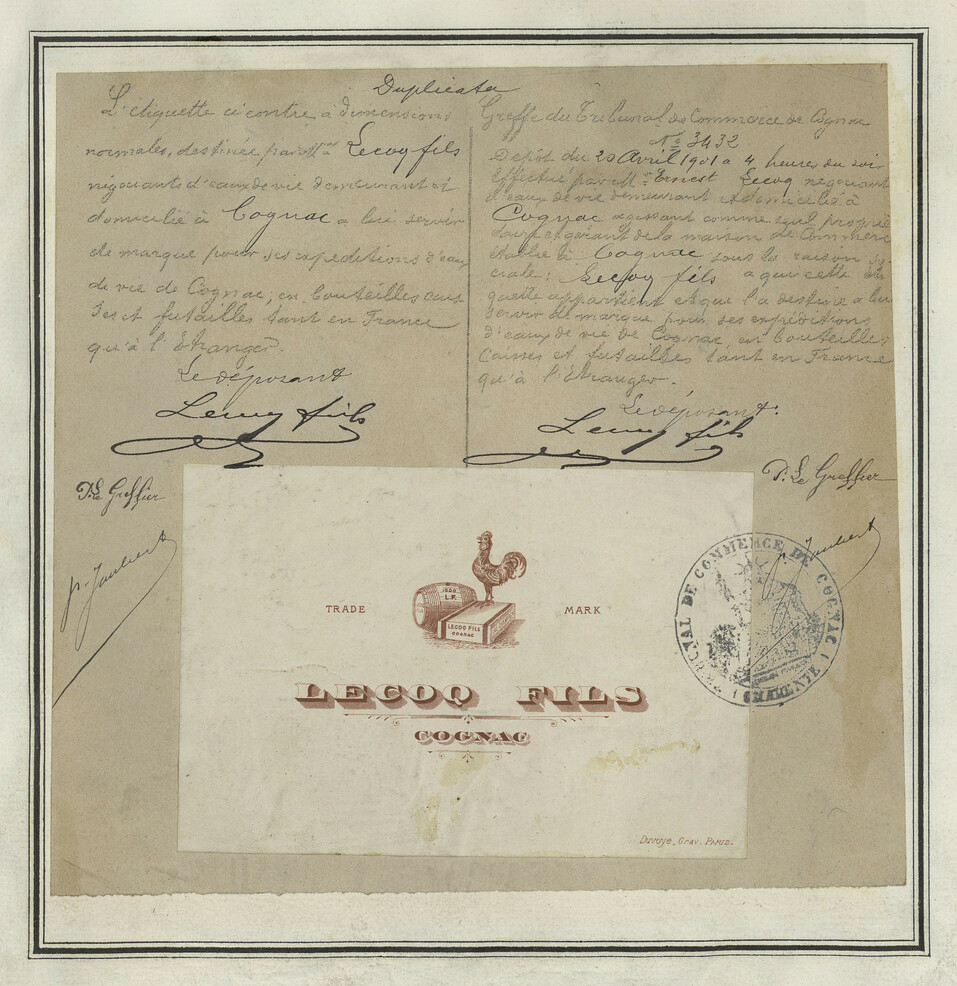 Duplicata
L'étiquette ci contre à dimensions
normales, destinée par Mrs Lecoq fils
négociants d'eaux de vie demeurant et
domicilié à Cognac a lui servir
de marque pour ses expéditions d'eaux
de vie de Cognac, en bouteilles cais
ses et futailles tant en France
qu'à l'Etranger.
Le déposant
Lecoq fils
P. Le Greffier
Greffe du Tribunal de Commerce de Cognac
No 3432
Dépôt du 20 Avril 1901 à 4 heures du soir
Effectué par Mr Ernest Lecoq négociant
d'eaux de vie demeurant et domicilié à
Cognac agissant comme seul proprié
taire et gérant de la maison de Commerce
établie à Cognac sous la raison so
ciale: Lecoq fils a qui cette éti
quette appartient et qui l'a destine a lui
servir de marque pour ses expéditions
d'eaux de vie de Cognac, en bouteilles
Caisses et futailles tant en France
qu'à l'Etranger.
Le déposant:
Lecoq fils
P. Le Greffier
p. Jaubert
p. Jaubert
TRIBUNAL DE COMMERCE DE COGNAC (CHARENTE)
TRADE MARK
1800
L.F.
LECOQ FILS
COGNAC
LECOQ FILS
COGNAC
Devoye, Grav. Paris.